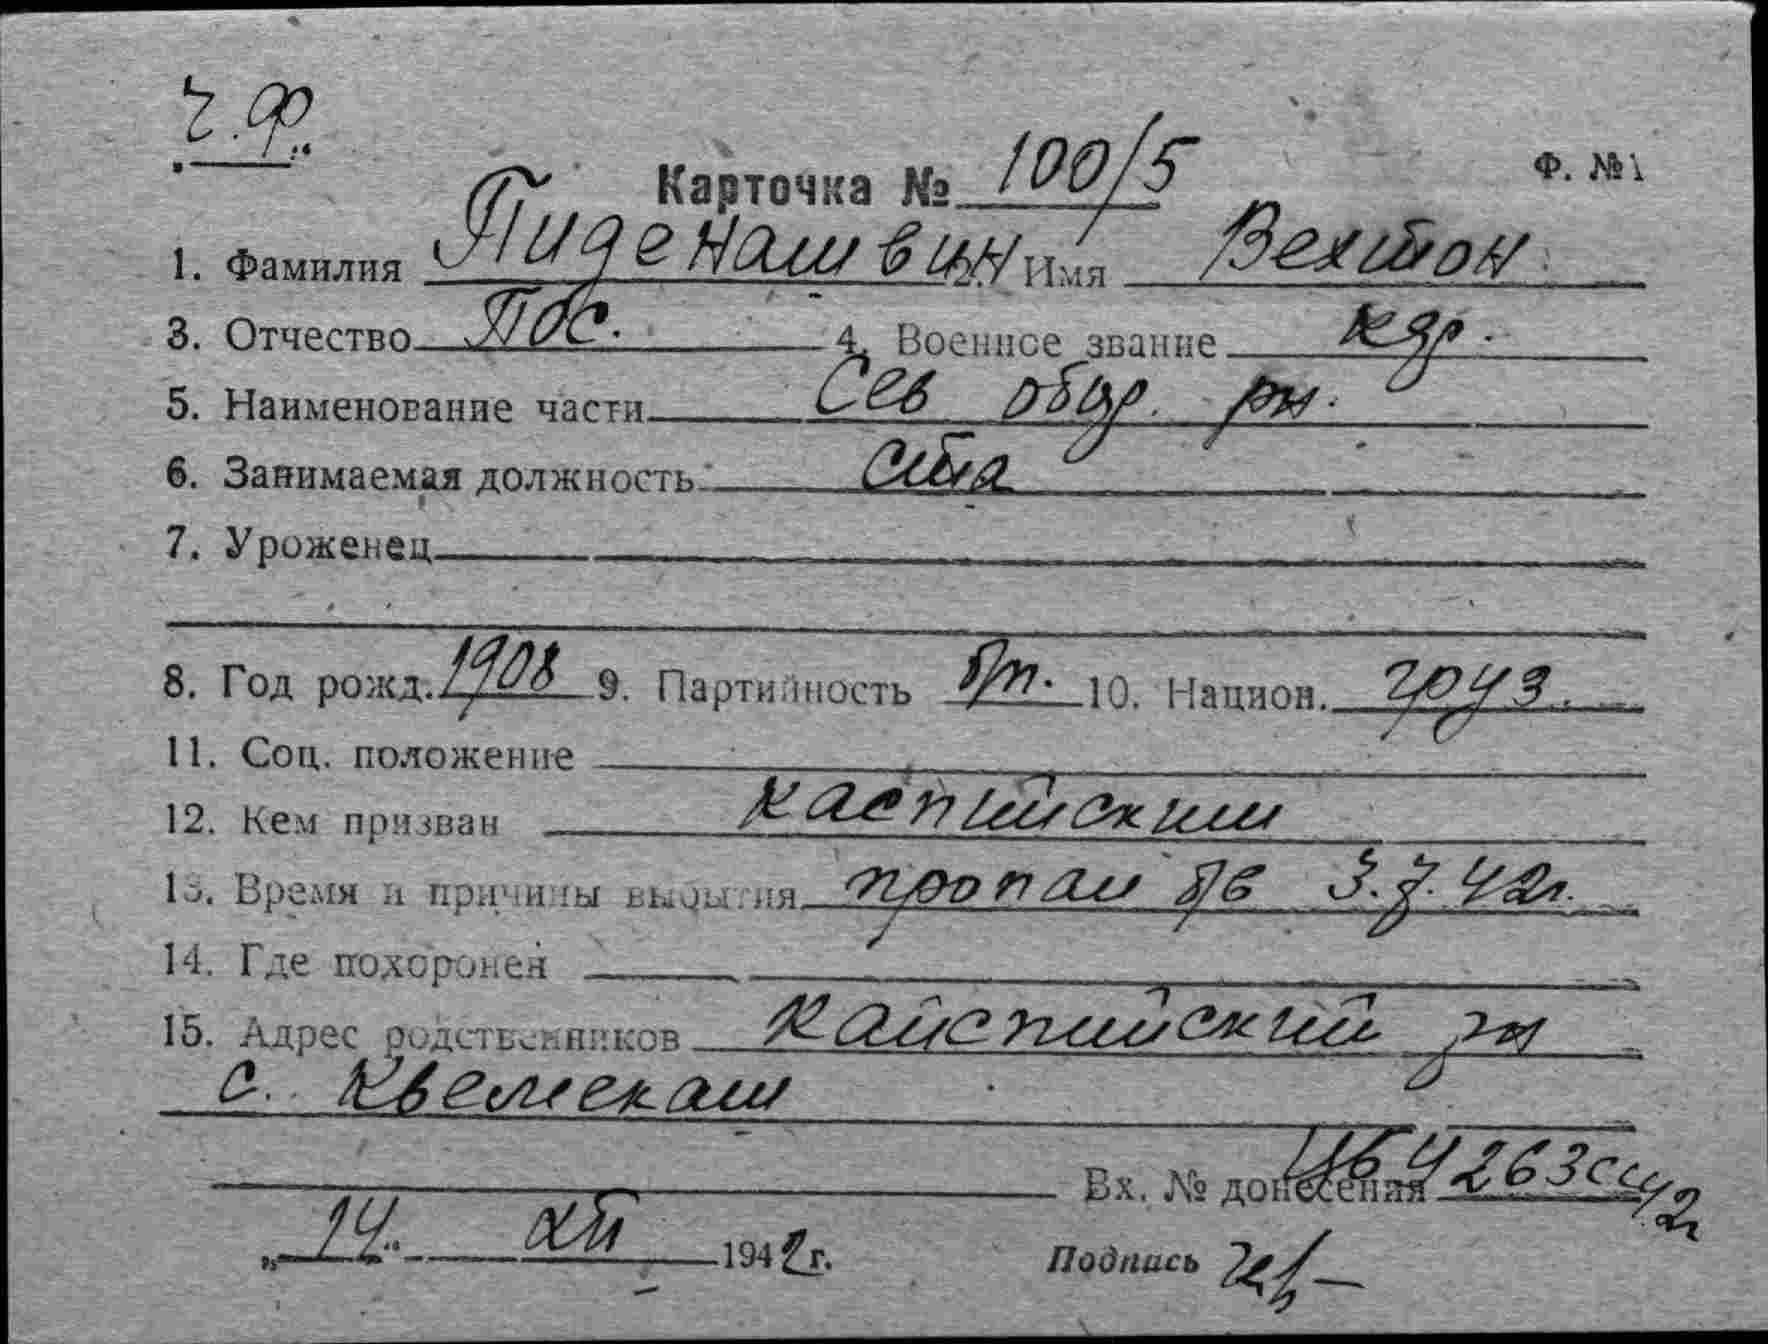 Ч.Ф.
Карточка № 100/5 Ф. №1
1. Фамилия Пиденашвин 2. Имя Вехтон
3. Отчество Пос. 4. Военное звание кдр.
5. Наименование части Сев обор. рн.
6. Занимаемая должность
7. Уроженец
8. Год рожд. 1908 9. Партийность б/п. 10. Национ. груз.
11. Соц. положение
12. Кем призван каспийским
13. Время и причины выбытия пропал б/в 3.7.42г.
14. Где похоронен
15. Адрес родственников Кайспийский рн
с. Квемекаш
Вх. № донесения 4263сс 42
„14“ XII 1942 г. Подпись